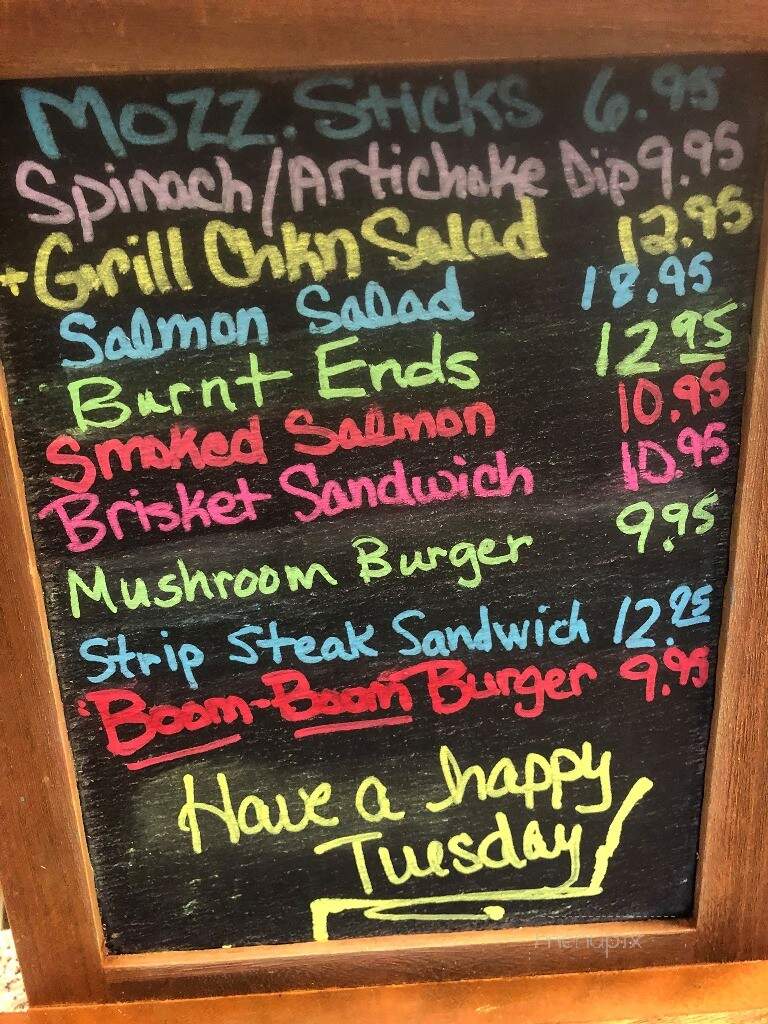 Mozz. Sticks 6.95
Spinach/Artichoke Dip 9.95
+Grill Chkn Salad 12.95
Salmon Salad 18.95
Burnt Ends 12 95
Smoked Salmon 10.95
Brisket Sandwich 10.95
Mushroom Burger 9.95
Strip Steak Sandwich 12.95
Boom-Boom Burger 9.95
Have a happy
Tuesday!
menupix